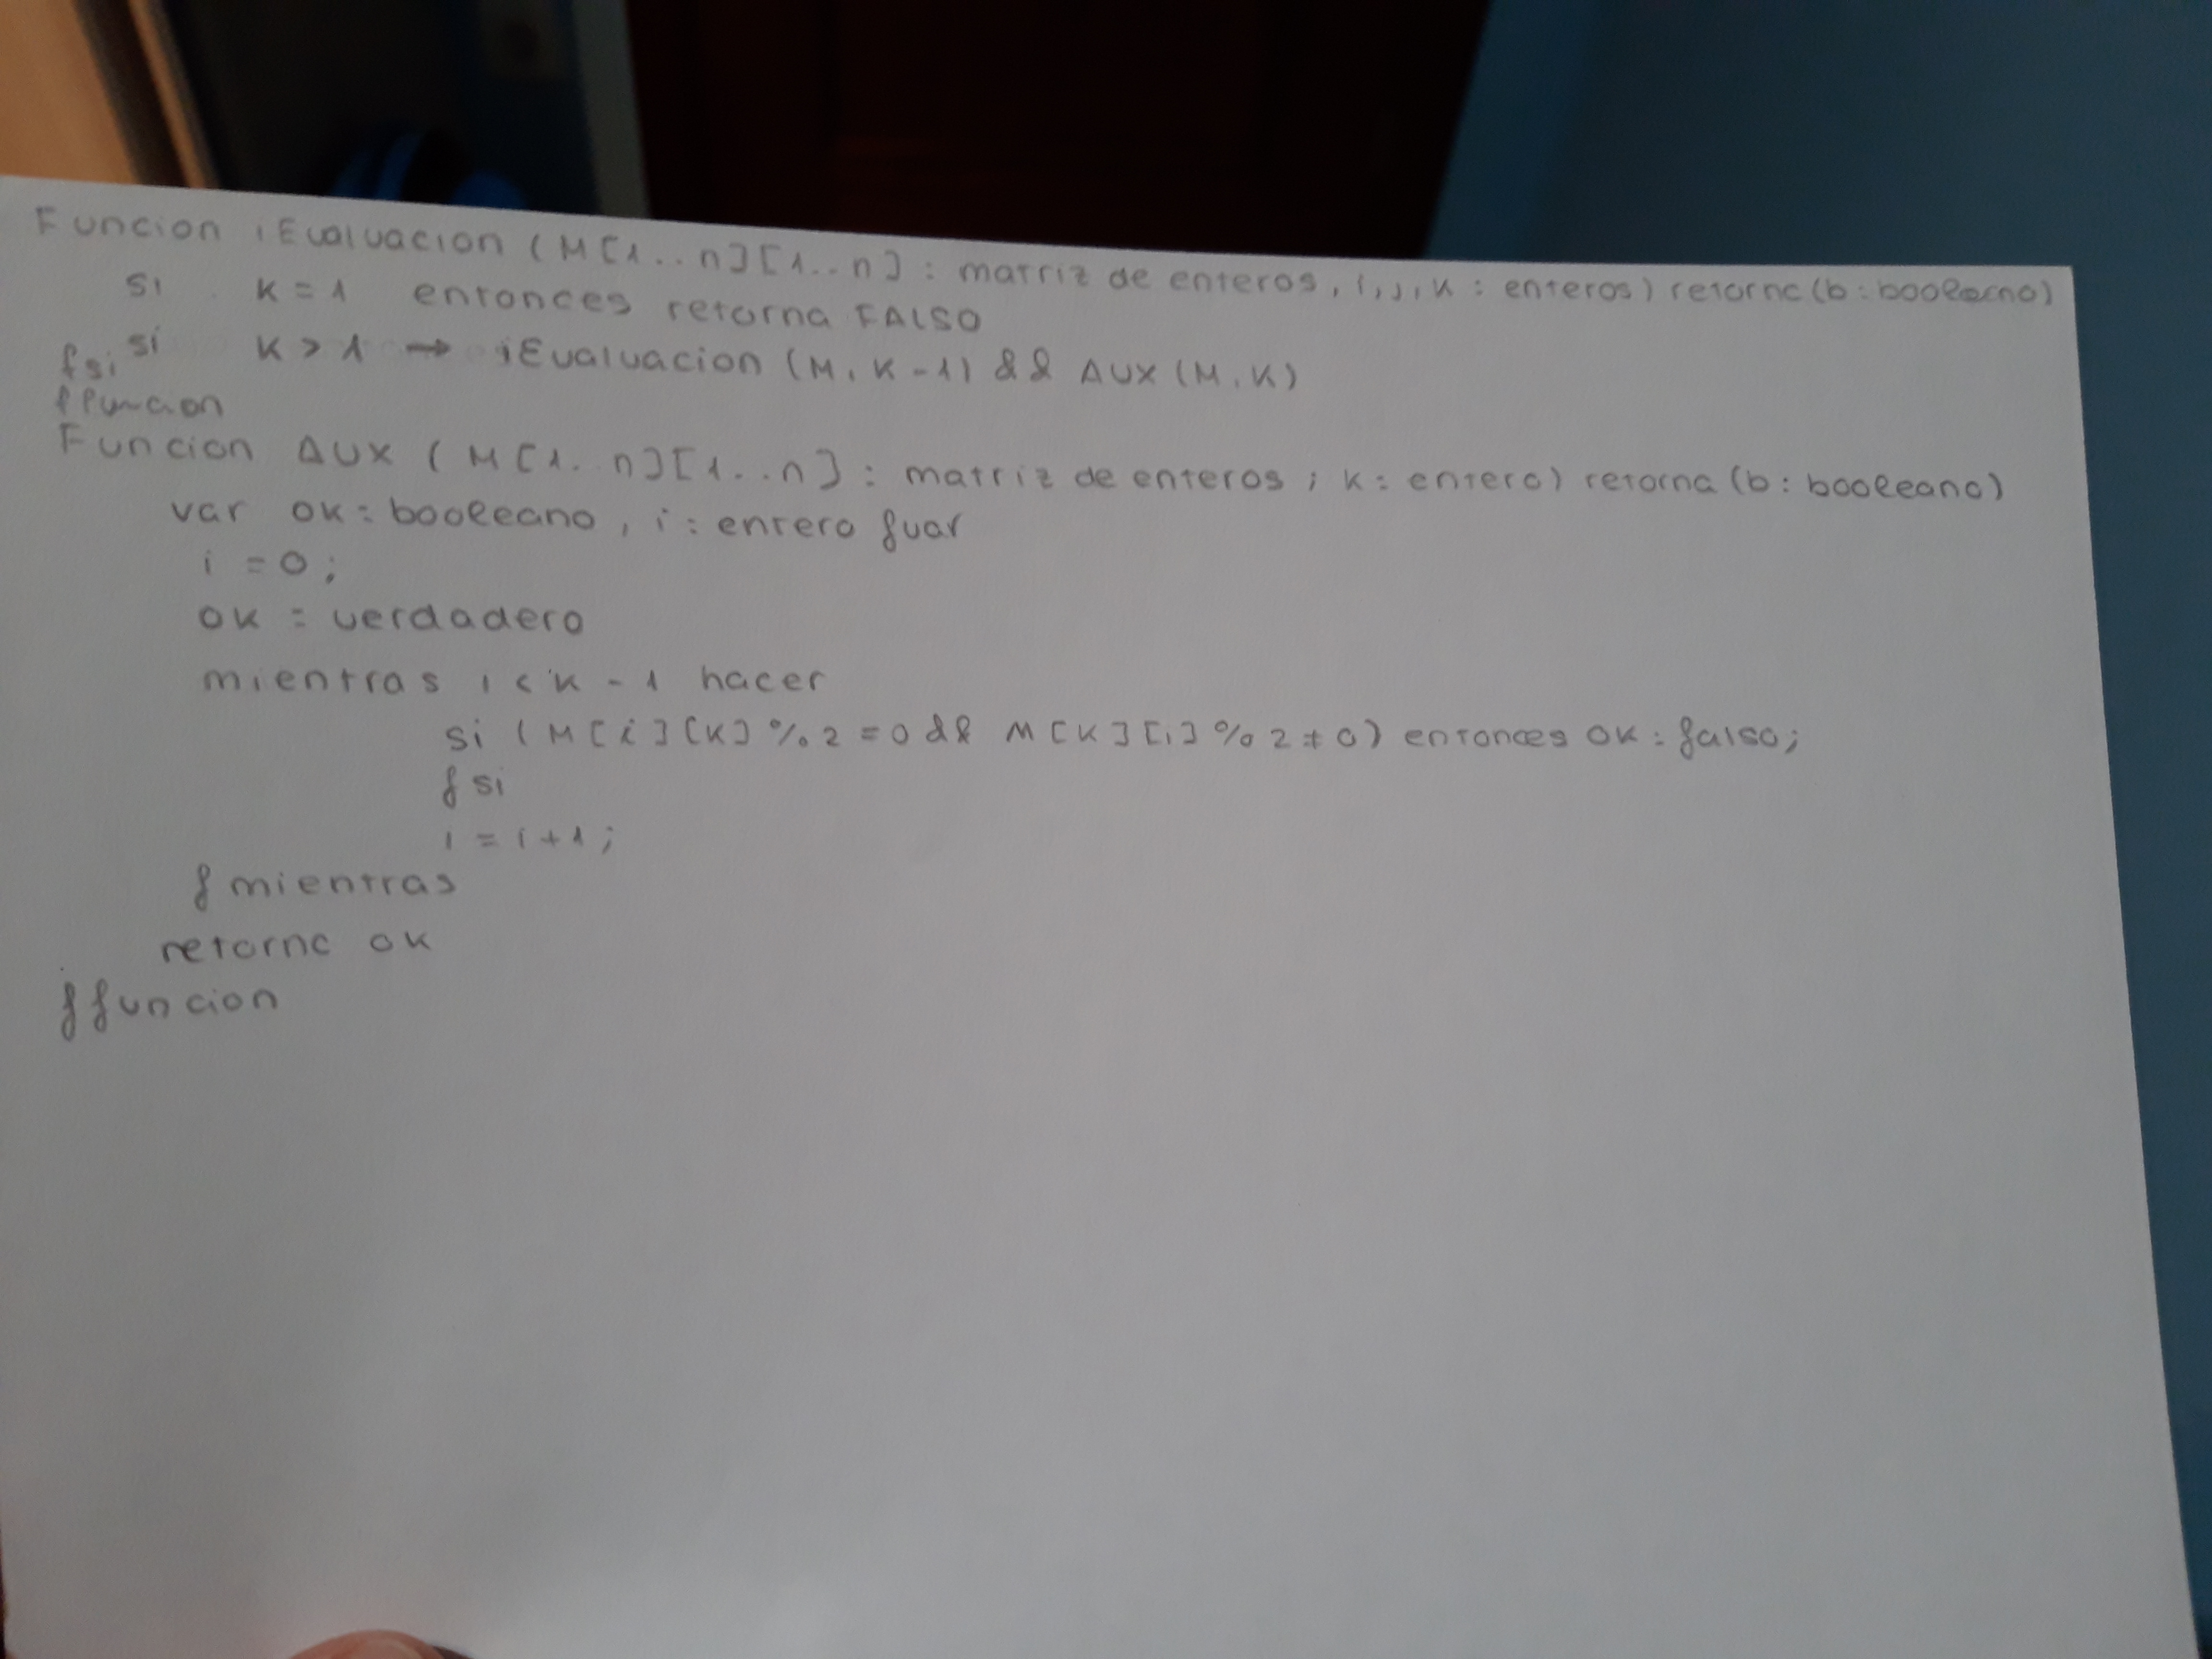 Funcion iEvaluacion (M[1..n][1..n] : matriz de enteros, i,j,K : enteros) retorna (b: booleano)
si K = 1 entonces retorna FALSO
si K > 1 → iEvaluacion (M, K-1) && AUX (M, K)
fsi
ffuncion
Funcion AUX ( M[1..n][1..n] : matriz de enteros ; K: entero) retorna (b: booleano)
var ok: booleano, i: entero fvar
i = 0;
ok = verdadero
mientras i < K - 1 hacer
si ( M[i][K] % 2 = 0 && M[K][i] % 2 ≠ 0) entonces ok = falso;
fsi
i = i+1;
fmientras
retorna ok
ffuncion